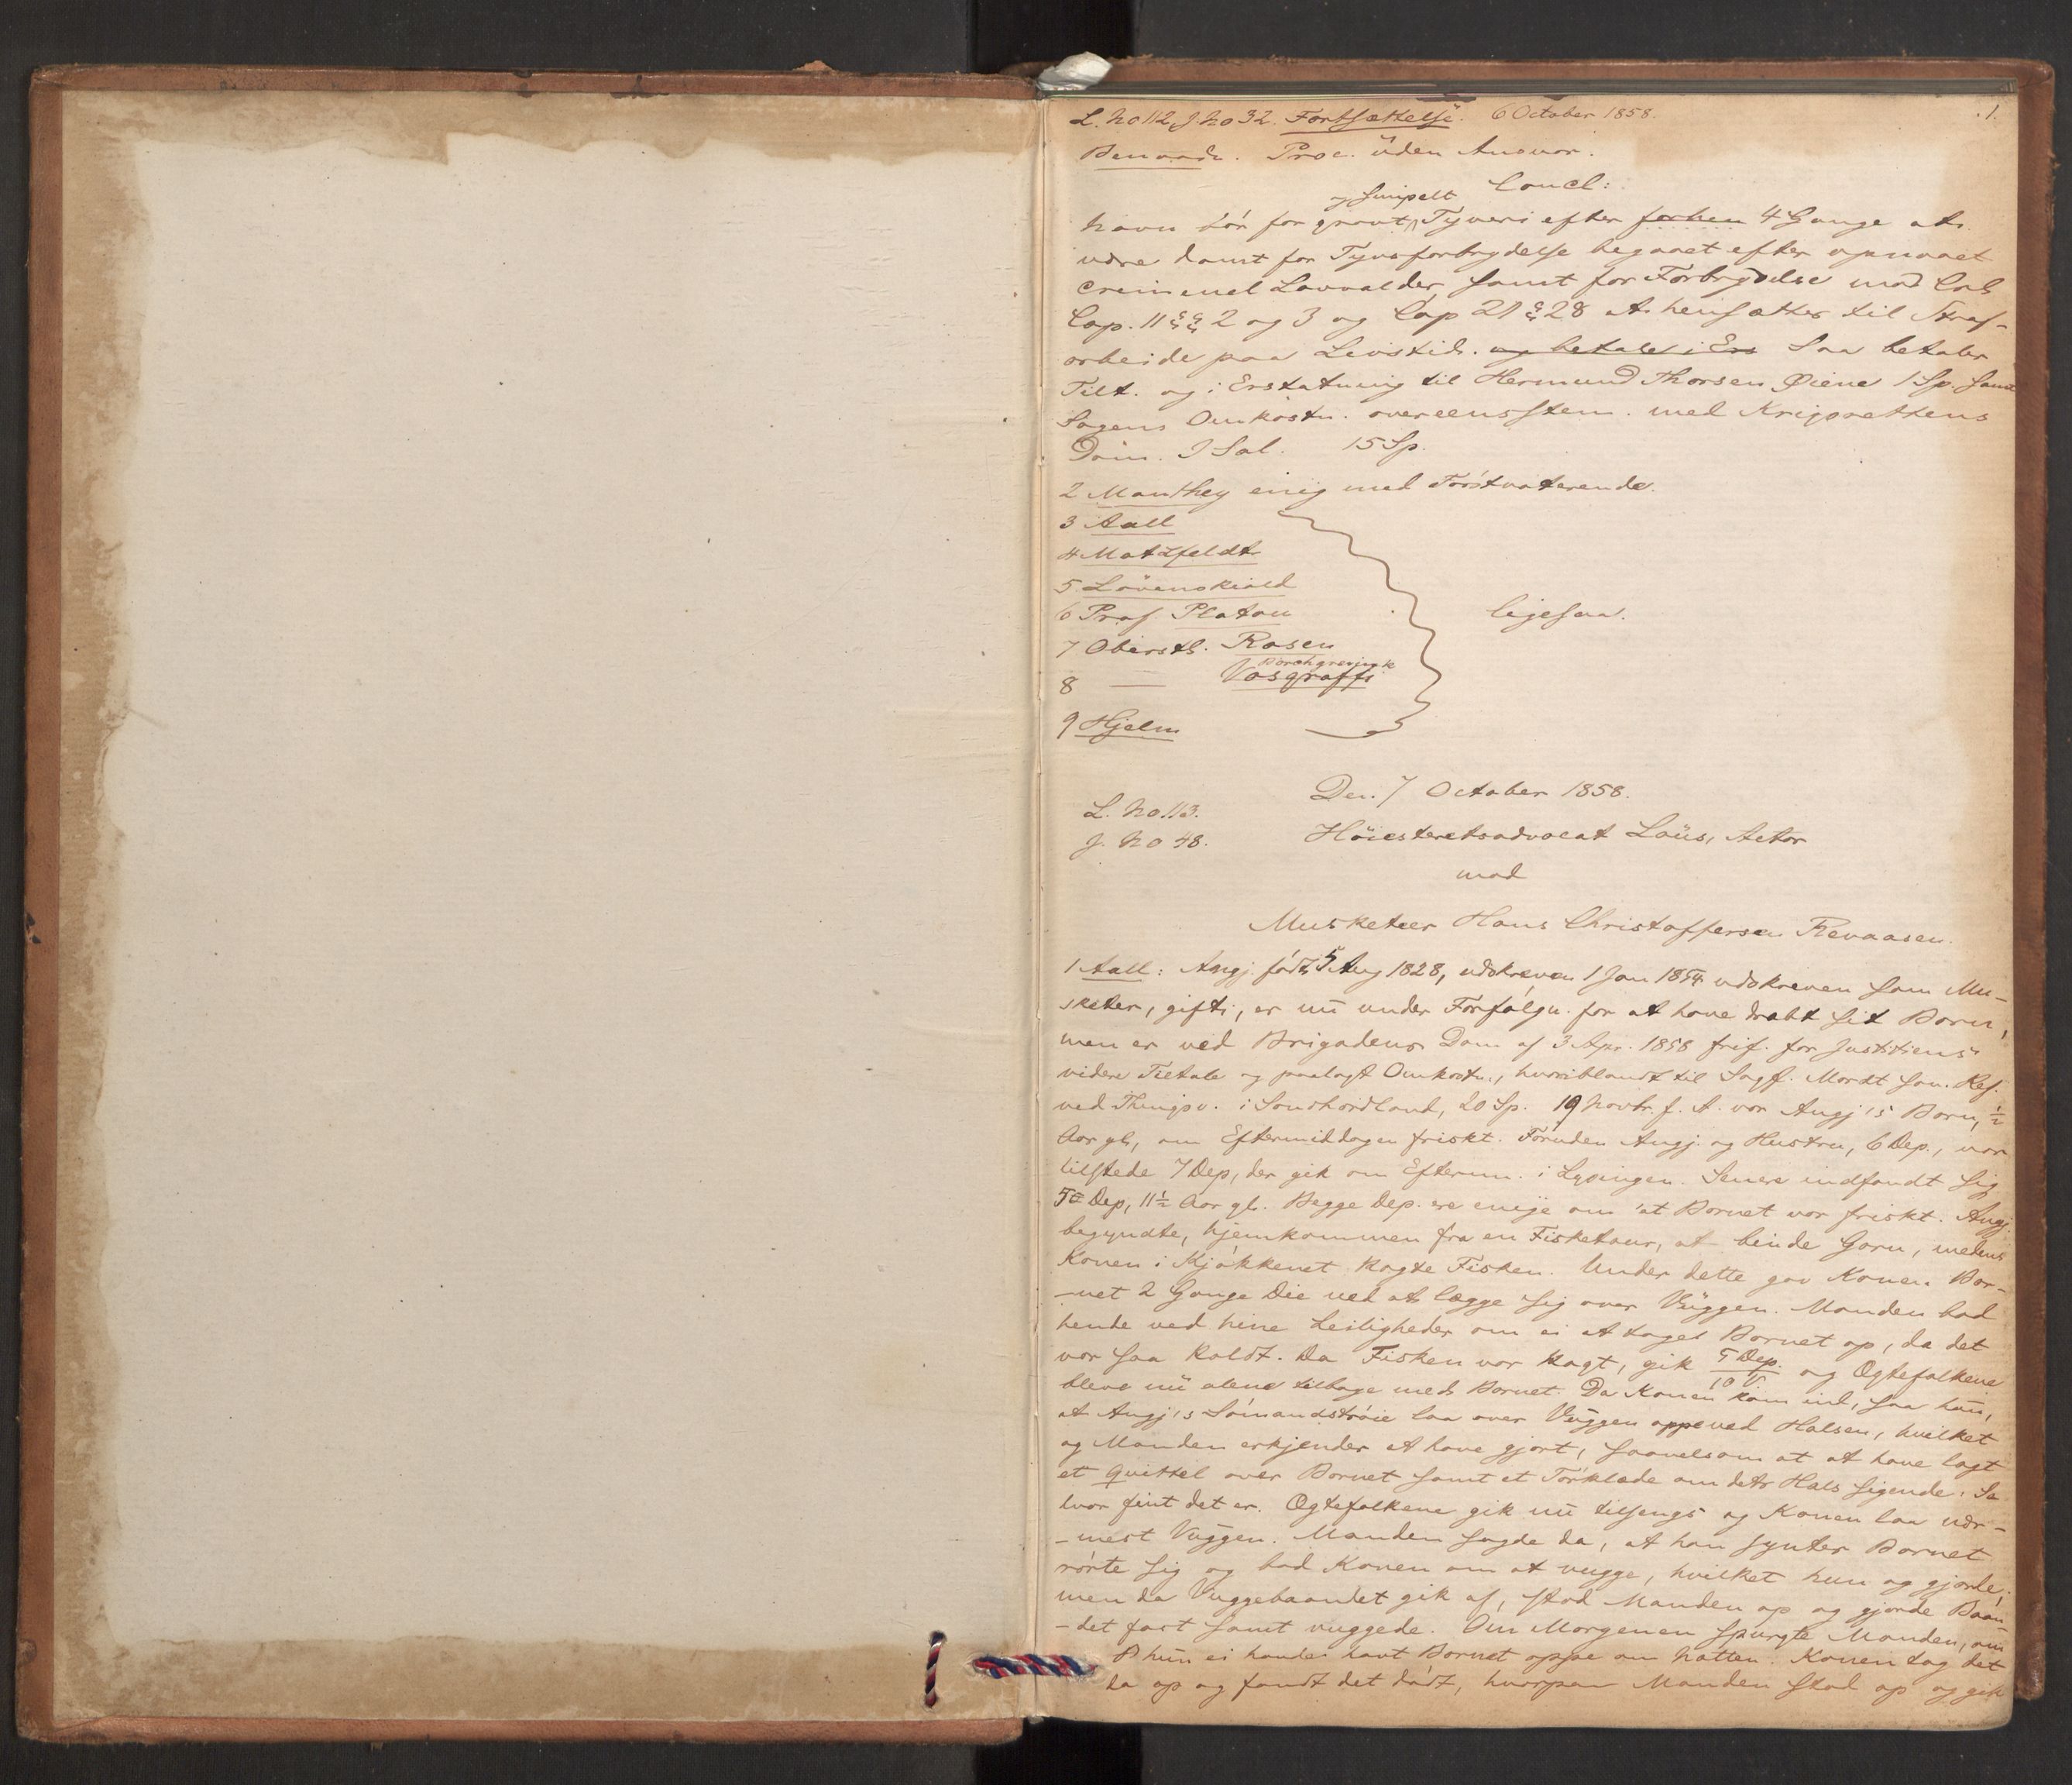 1.
L. No 112, J. No 32. Fortsættelse. 6 October 1858.
Benvadn. Proc. uden Ansvar.
Concl:
og simpelt
Navn bør for grovt Tyveri efter forhen 4 Gange at
være dømt for Tyvsforbrydelse begaaet efter opnaaet
criminel Lavalder, samt for Forbrydelse mod Crl
Cap. 11 §§ 2 og 3 og Cap 21 § 28 at hensættes til Straf-
arbeide paa Livstid. og betale i Ers Saa betaler
Tilt. og i Erstatning til Hermund Thorsen Øiene 1 Sp. samt
Sagens Omkostn. overeensstem. med Krigsrettens
Dom. I Sal. 15 Sp.
2 Manthey enig med Førstvoterende.
3 Aall
4 Motzfeldt
5 Lövenskiold
6 Prof. Platou
ligesaa.
7 Oberstl. Rosen
Borchgrevink
8 — Vosgraff
9 Hjelm
Den 7 October 1858.
L. No 113.
J. No 48.
Höiesteretsadvocat Laüs, Actor
mod
Musketeer Hans Christoffersen Revaasen.
1 Aall: Angj. født 5 Aug 1828, udskreven 1 Jan 1854 udskreven som Mu-
sketer, gift, er nu under Forfølgn. for at have dræbt sit Barn,
men er ved Brigadens Dom af 3 Apr. 1858 frif. for Justitiens
videre Tiltale og paalagt Omkostn., hvoriblandt til Sagf. Mordt som Def.
ved Thingsv. i Søndhordland, 20 Sp. 19 Novbr. f. A. var Angj's Barn, ½
Aar gl., om Eftermiddagen friskt. Foruden Angj. og Hustru, 6 Dep., var
tilstede 7 Dep, der gik om Efterm. i Lysingen. Senere indfandt sig
5te Dep, 11½ Aar gl. Begge Dep. ere enige om at Barnet var friskt. Angj.
begyndte, hjemkommen fra en Fisketour, at binde Garn, medens
Konen i Kjøkkenet kogte Fisken. Under dette gav Konen Bar-
-net 2 Gange Die ved at lægge sig over Vuggen. Manden bad
hende ved hine Leiligheder om ei at taget Barnet op, da det
var saa koldt. Da Fisken var kogt, gik 5 Dep. og Ægtefolkene
10
bleve nu alene tilbage med Barnet. Da Konen kom ind, saa hun,
at Angj's Sömandströie laa over Vuggen oppe ved Halsen, hvilket
og Manden erkjender at have gjort, saavelsom at at have lagt
et Qvittel over Barnet samt et Törklæde om dets Hals sigende: Se
hvor fint det er. Ægtefolkene gik nu tilsengs og Konen laa nær-
-mest Vuggen. Manden sagde da, at han syntes Barnet
rörte sig og bad Konen om at vugge, hvilket hun og gjorde;
men da Vuggebaandet gik af, stod Manden op og gjorde Baan-
-det fast samt vuggede. Om Morgenen spurgte Manden, om
hun ei havde havt Barnet oppe om Natten. Konen tog det
da op og fandt det dödt, hvorpaa Manden stod op og gik